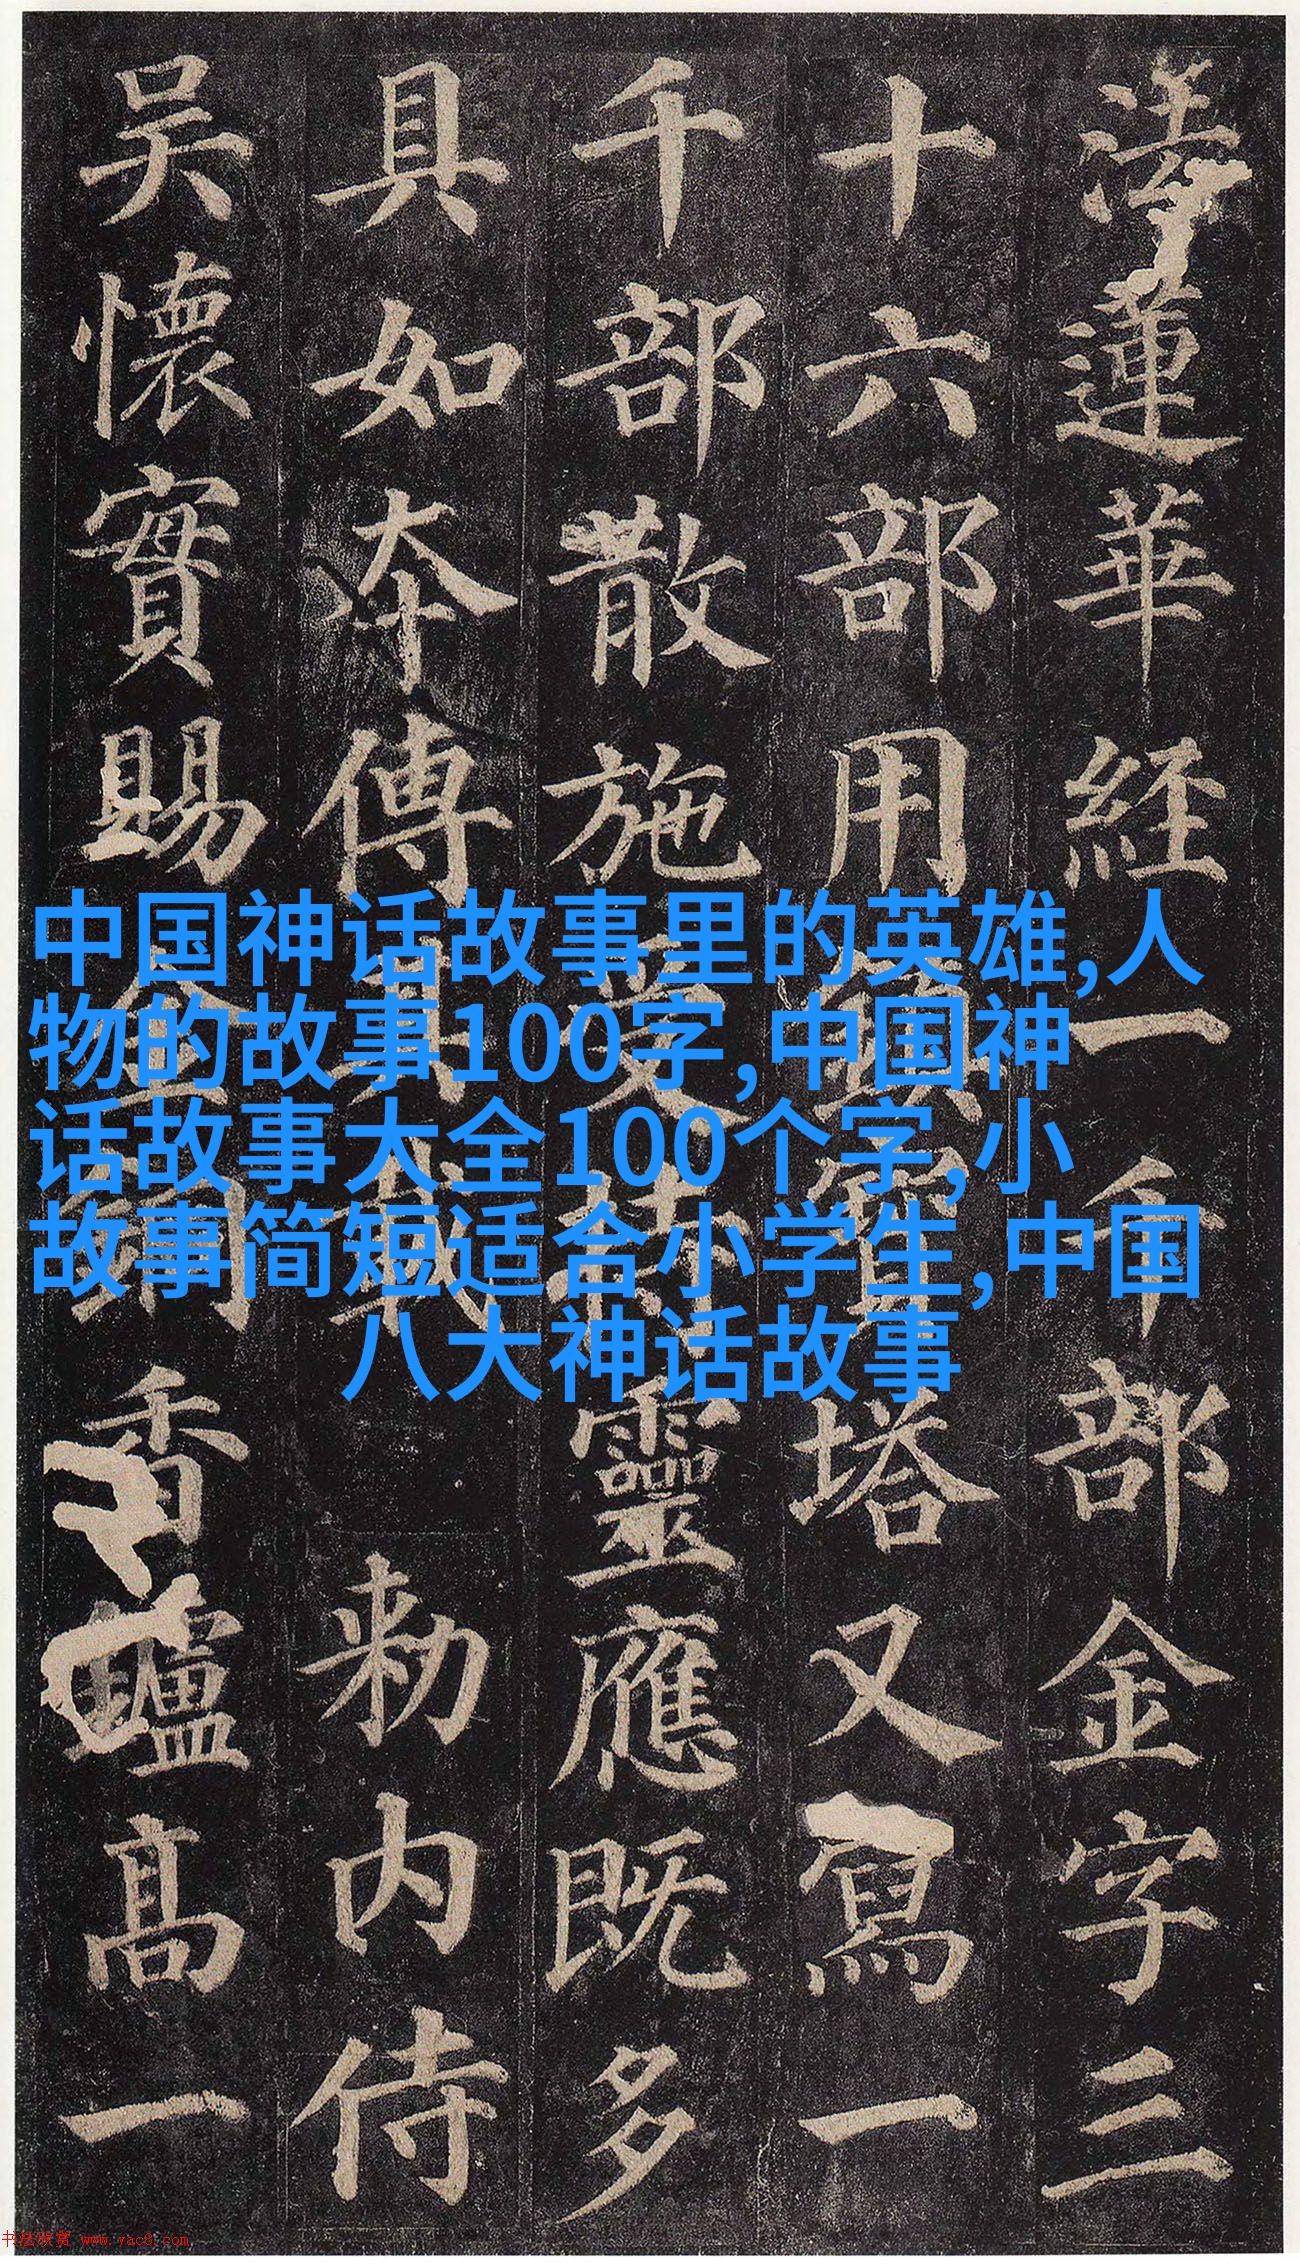 法蓮華経一千部金字三
十六部用鎮寶塔又寫一
千部散施受持靈應既多
具如夲傳其載 勅内侍
吴懷實賜金銅香鑪髙一
中国神话故事里的英雄,人
物的故事100字,中国神
话故事大全100个字,小
故事简短适合小学生,中国
八大神话故事
书法欣赏 www.yac8.com